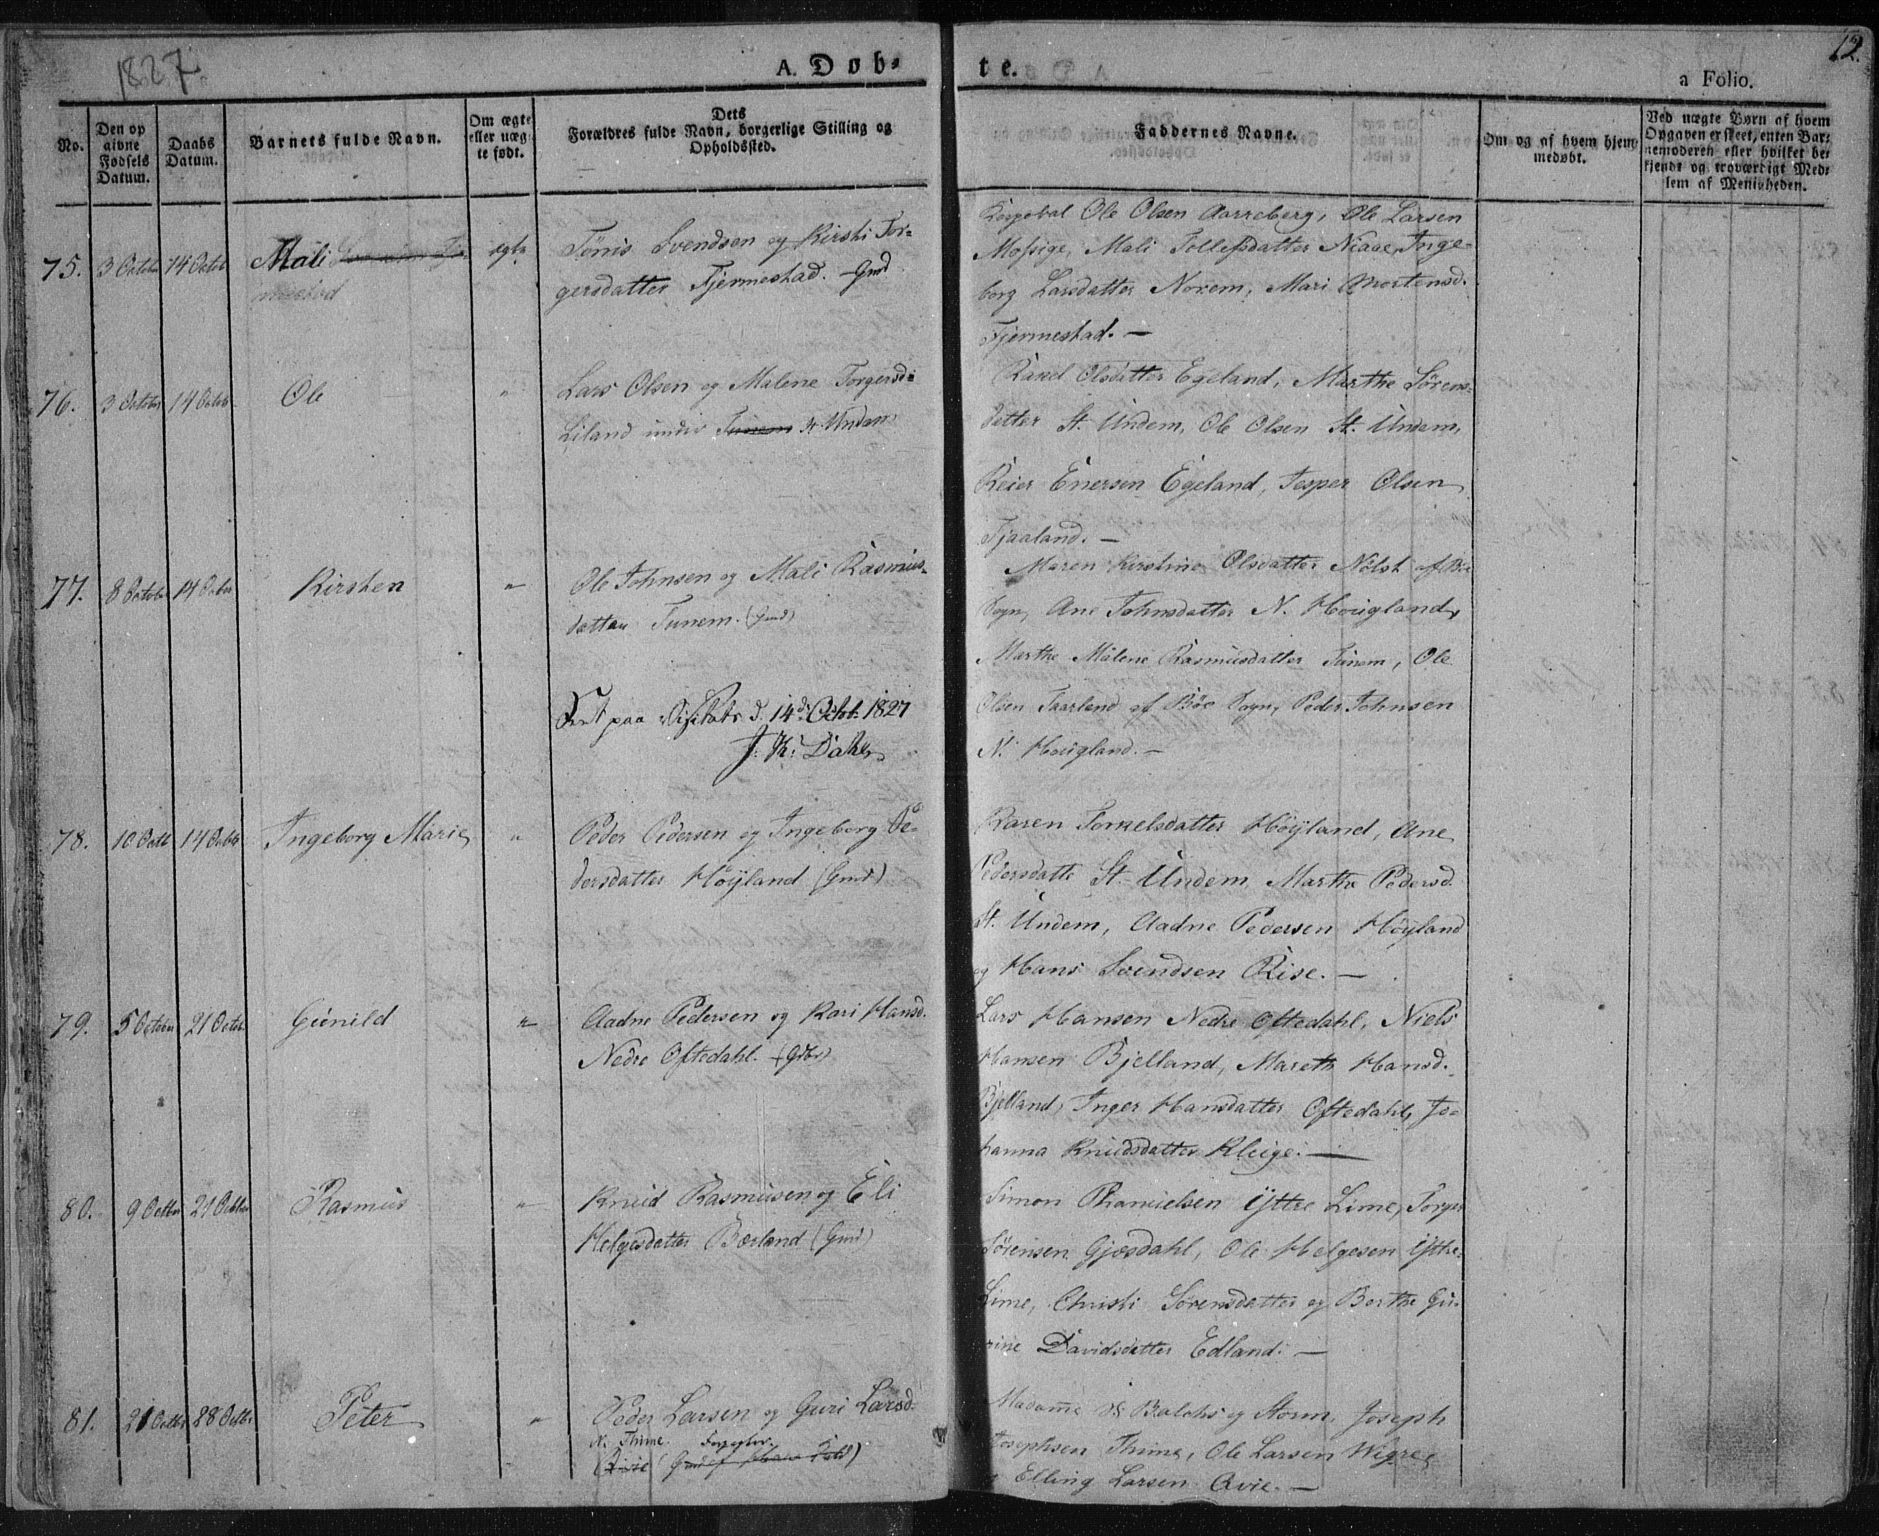 1827.
A. Døb-
te.
12.
a Folio.
No.
Den op
givne
Fødsels
Datum.
Daabs
Datum.
Barnets fulde Navn.
Om ægte
eller uæg-
te født.
Dets
Forældres fulde Navn, borgerlige Stilling og
Opholdssted.
Faddernes Navne.
Om og af hvem hjem-
medøbt.
Ved uægte Børn af hvem
Opgaven er skeet, enten Bar-
nemoderen eller hvilket be-
kjendt og troværdigt Med-
lem af Menigheden.
75. 3 October 14 Octob Mali ægte Tønis Svendsen og Kirsti Tor-
gersdatter Fjermestad. Gmd
Ole Olsen Aarreberg, Ole Larsen
Mossige, Mali Tollefsdatter Niaae, Inge-
borg Larsdatter Norem, Mari Mortensd.
Fjermestad. —
76. 3 October 14 Octob Ole " Lars Olsen og Malene Torgersd:
Liland under St Undem
Rakel Olsdatter Egeland, Marthe Sørens-
datter St. Undem, Ole Olsen St. Undem,
Reier Enersen Egeland, Jesper Olsen
Fjaaland. —
77. 8 Octobe 14 Octobr Kirsten " Ole Johnsen og Mali Rasmus-
datter Tunem. (Gmd)
Maren Kirstine Olsdatter Nølst af Bø
Sogn, Ane Johnsdatter N. Hougland,
Marthe Malene Rasmusdatter Tunem, Ole
Olsen Taarland af Bøe Sogn, Peder Johnsen
N. Hougland. —
paa Visitats d. 14d. Octob. 1827
78. 10 Octb 14 Octobr Ingeborg Marie " Peder Pedersen og Ingeborg Pe-
dersdatter Høyland (Gmd)
Karen Torkelsdatter Høyland, Ane
Pedersdatte St. Undem, Marthe Pedersd.
St. Undem, Aadne Pedersen Høyland
og Hans Svendsen Rise. —
79. 5 October 21 Octob. Gunild " Aadne Pedersen og Kari Hansd.
Nedre Oftedahl. (Gdbr)
Lars Hansen Nedre Oftedahl, Niels
Hansen Bjelland, Mareth Hansd.
Bjelland, Inger Hansdatter Oftedahl, Jo-
hanna Knudsdatter Kleige. —
80. 9 Octbr 21 Octbr Rasmus " Knud Rasmusen og Eli
Helgesdatter Bærland (Gmd)
Simon Thamielsen Yttre Lime, Torger
Sørensen Gjesdahl, Ole Helgesen Yttre
Lime, Christi Sørensdatter og Berthe Gu-
rine Davidsdatter Edland. —
81. 21 Octbr 28 Octbr Peter " Peder Larsen og Guri Larsd.
N. Thime.
Madame Balchs og Storm, Joseph
Josephsen Thime, Ole Larsen Wigre
og Elling Larsen Avie. —